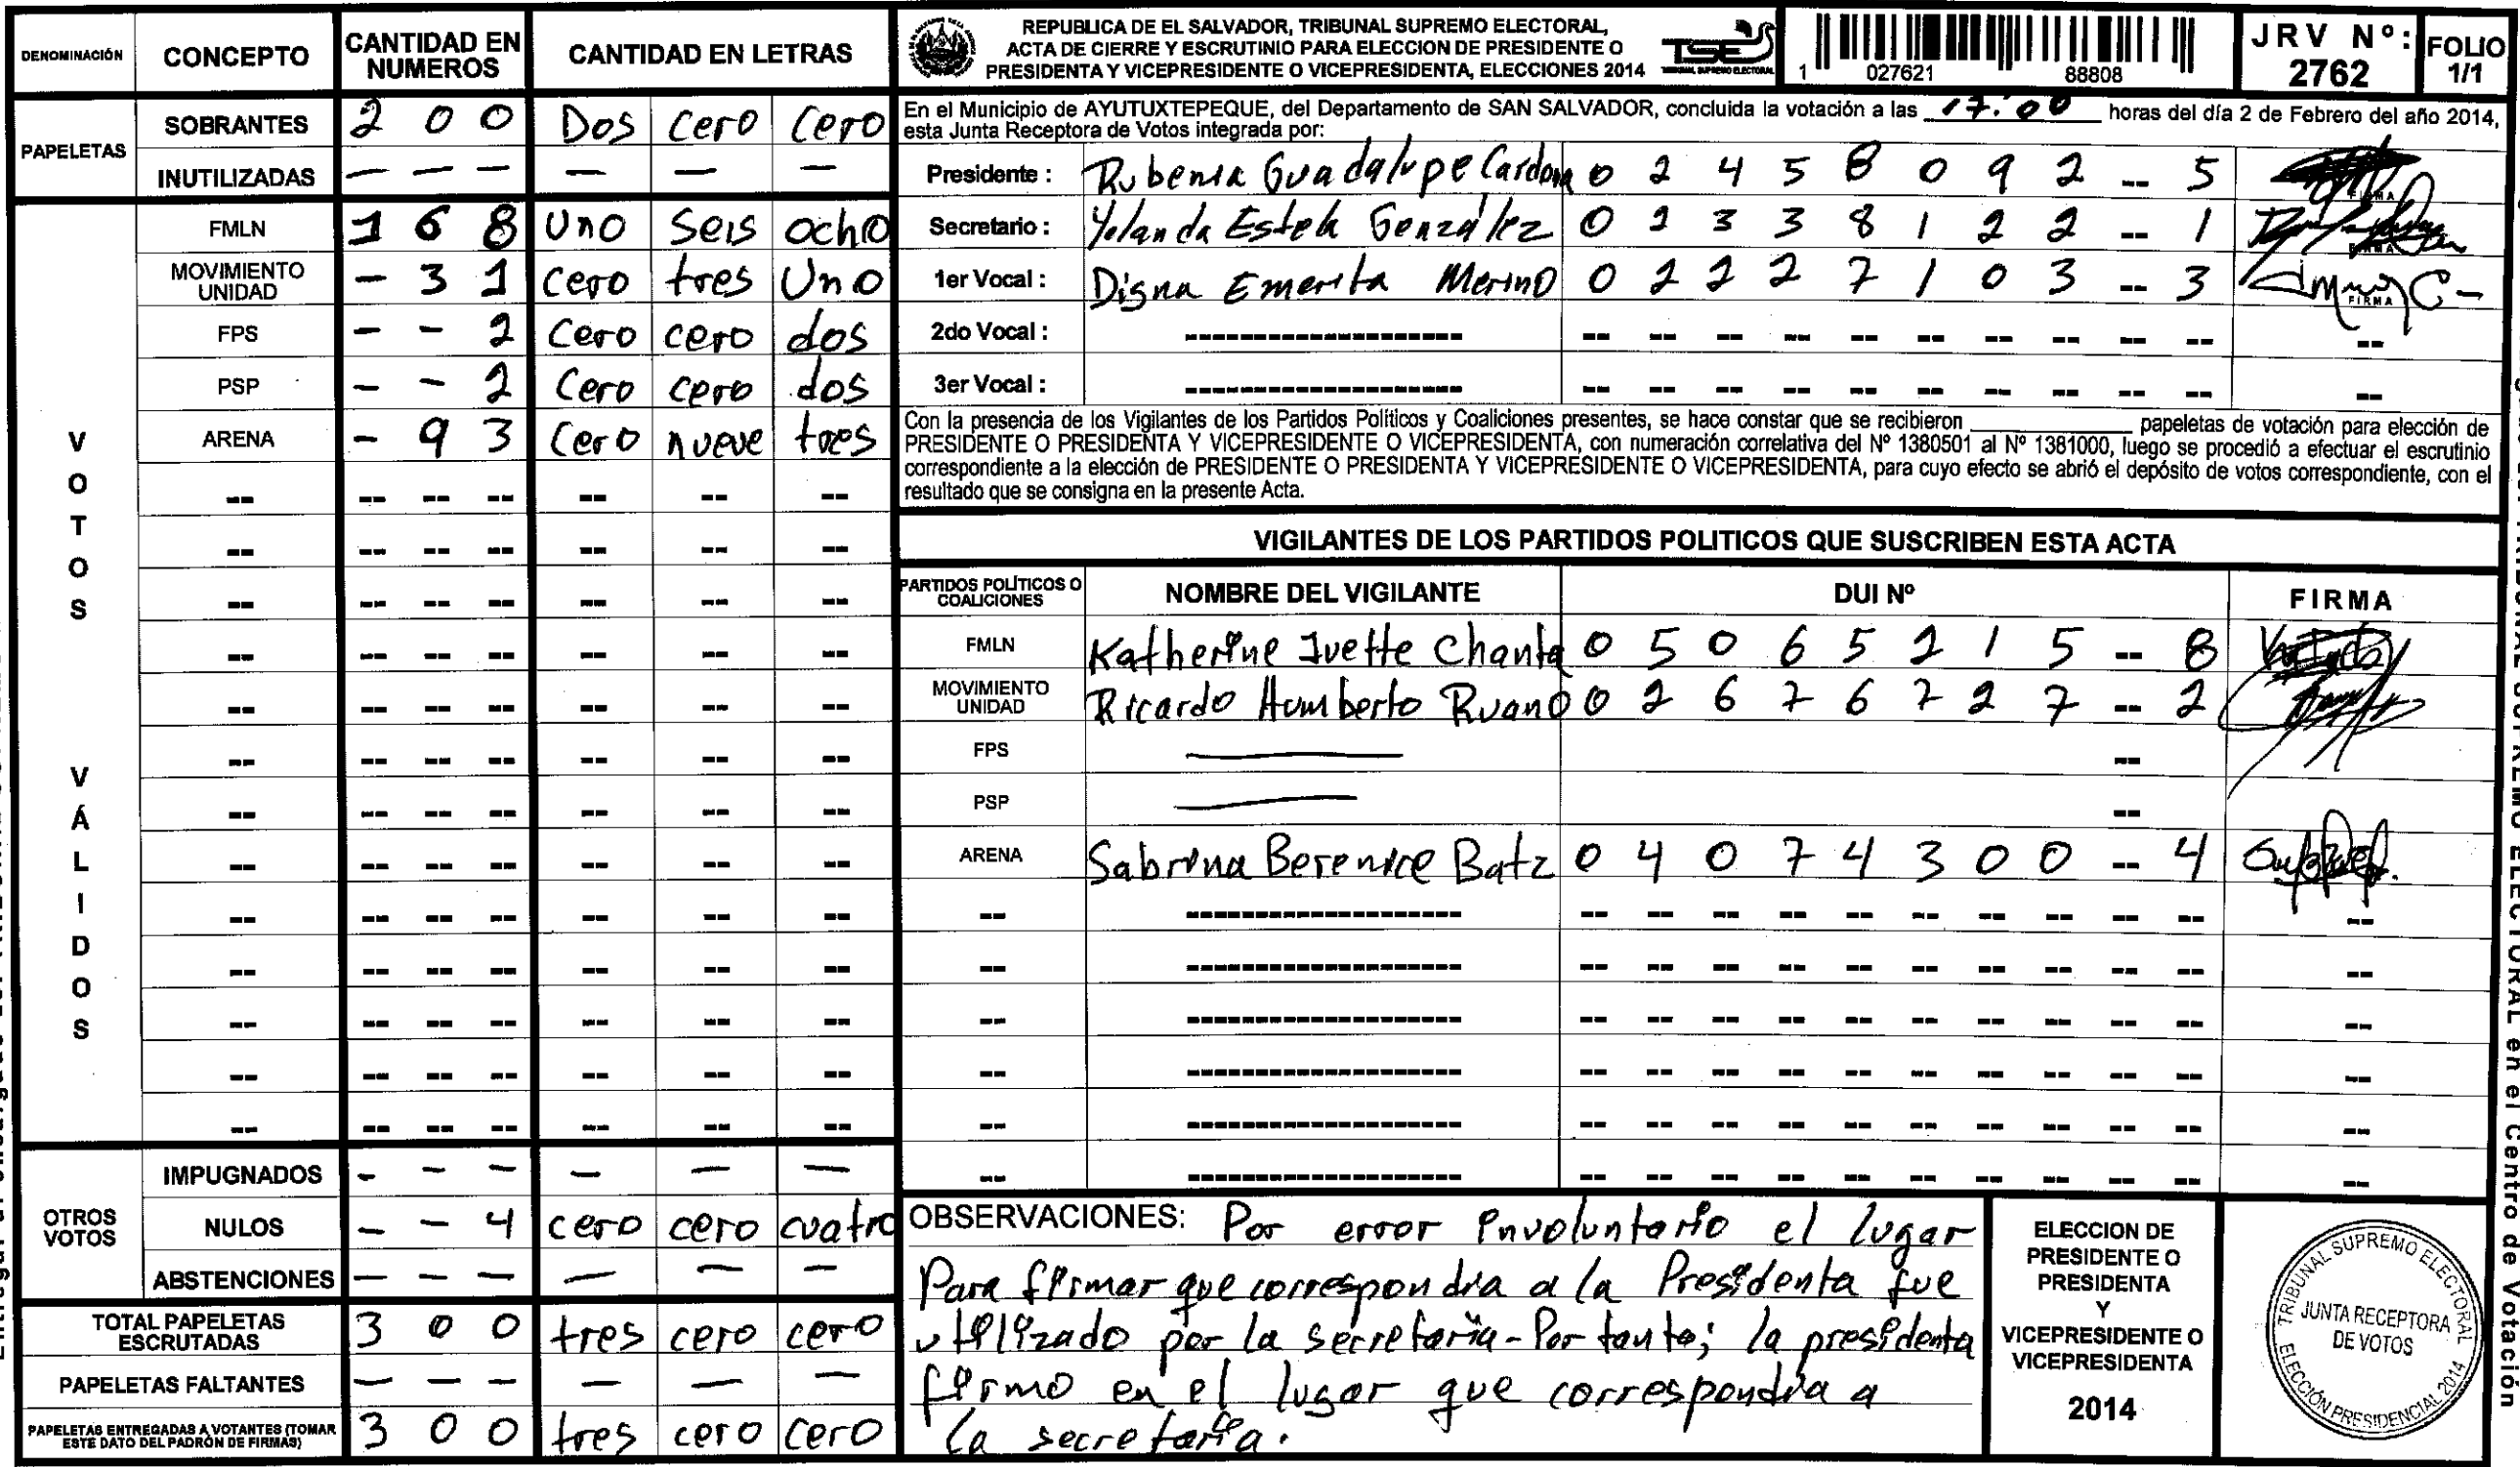 DENOMINACIÓN CONCEPTO CANTIDAD EN NUMEROS CANTIDAD EN LETRAS
PAPELETAS
SOBRANTES 2 0 0 Dos cero cero
INUTILIZADAS — — — — — —
VOTOS VÁLIDOS
FMLN 1 6 8 Uno Seis ocho
MOVIMIENTO UNIDAD - 3 1 cero tres Uno
FPS - - 2 Cero cero dos
PSP - - 2 Cero cero dos
ARENA - 9 3 Cero nueve tres
OTROS VOTOS
IMPUGNADOS - - - — — —
NULOS - - 4 cero cero cuatro
ABSTENCIONES — — — — — —
TOTAL PAPELETAS ESCRUTADAS 3 0 0 tres cero cero
PAPELETAS FALTANTES — — — — — —
PAPELETAS ENTREGADAS A VOTANTES (TOMAR ESTE DATO DEL PADRÓN DE FIRMAS) 3 0 0 tres cero cero
REPUBLICA DE EL SALVADOR, TRIBUNAL SUPREMO ELECTORAL,
ACTA DE CIERRE Y ESCRUTINIO PARA ELECCION DE PRESIDENTE O
PRESIDENTA Y VICEPRESIDENTE O VICEPRESIDENTA, ELECCIONES 2014
TSE
TRIBUNAL SUPREMO ELECTORAL
1 027621 88808
JRV Nº: 2762
FOLIO 1/1
En el Municipio de AYUTUXTEPEQUE, del Departamento de SAN SALVADOR, concluida la votación a las 17:00 horas del día 2 de Febrero del año 2014,
esta Junta Receptora de Votos integrada por:
Presidente : Rubenia Guadalupe Cardona 0 2 4 5 8 0 9 2 -- 5
Secretario : Yolanda Estela González 0 2 3 3 8 1 2 2 -- 1
1er Vocal : Digna Emerita Merino 0 2 2 2 7 1 0 3 -- 3 FIRMA
2do Vocal :
3er Vocal :
Con la presencia de los Vigilantes de los Partidos Políticos y Coaliciones presentes, se hace constar que se recibieron ________ papeletas de votación para elección de
PRESIDENTE O PRESIDENTA Y VICEPRESIDENTE O VICEPRESIDENTA, con numeración correlativa del Nº 1380501 al Nº 1381000, luego se procedió a efectuar el escrutinio
correspondiente a la elección de PRESIDENTE O PRESIDENTA Y VICEPRESIDENTE O VICEPRESIDENTA, para cuyo efecto se abrió el depósito de votos correspondiente, con el
resultado que se consigna en la presente Acta.
VIGILANTES DE LOS PARTIDOS POLITICOS QUE SUSCRIBEN ESTA ACTA
PARTIDOS POLÍTICOS O COALICIONES NOMBRE DEL VIGILANTE DUI Nº FIRMA
FMLN Katherine Ivette Chanta 0 5 0 6 5 2 1 5 -- 8
MOVIMIENTO UNIDAD Ricardo Humberto Ruano 0 2 6 7 6 7 2 7 -- 2
FPS
PSP
ARENA Sabrina Berenice Batz 0 4 0 7 4 3 0 0 -- 4
OBSERVACIONES: Por error involuntario el lugar
Para firmar que correspondia a la Presidenta fue
utilizado por la secretaria - Por tanto; la presidenta
firmo en el lugar que correspondia a
la secretaria.
ELECCION DE
PRESIDENTE O
PRESIDENTA
Y
VICEPRESIDENTE O
VICEPRESIDENTA
2014
TRIBUNAL SUPREMO ELECTORAL
JUNTA RECEPTORA
DE VOTOS
ELECCIÓN PRESIDENCIAL 2014
TRIBUNAL SUPREMO ELECTORAL en el Centro de Votación